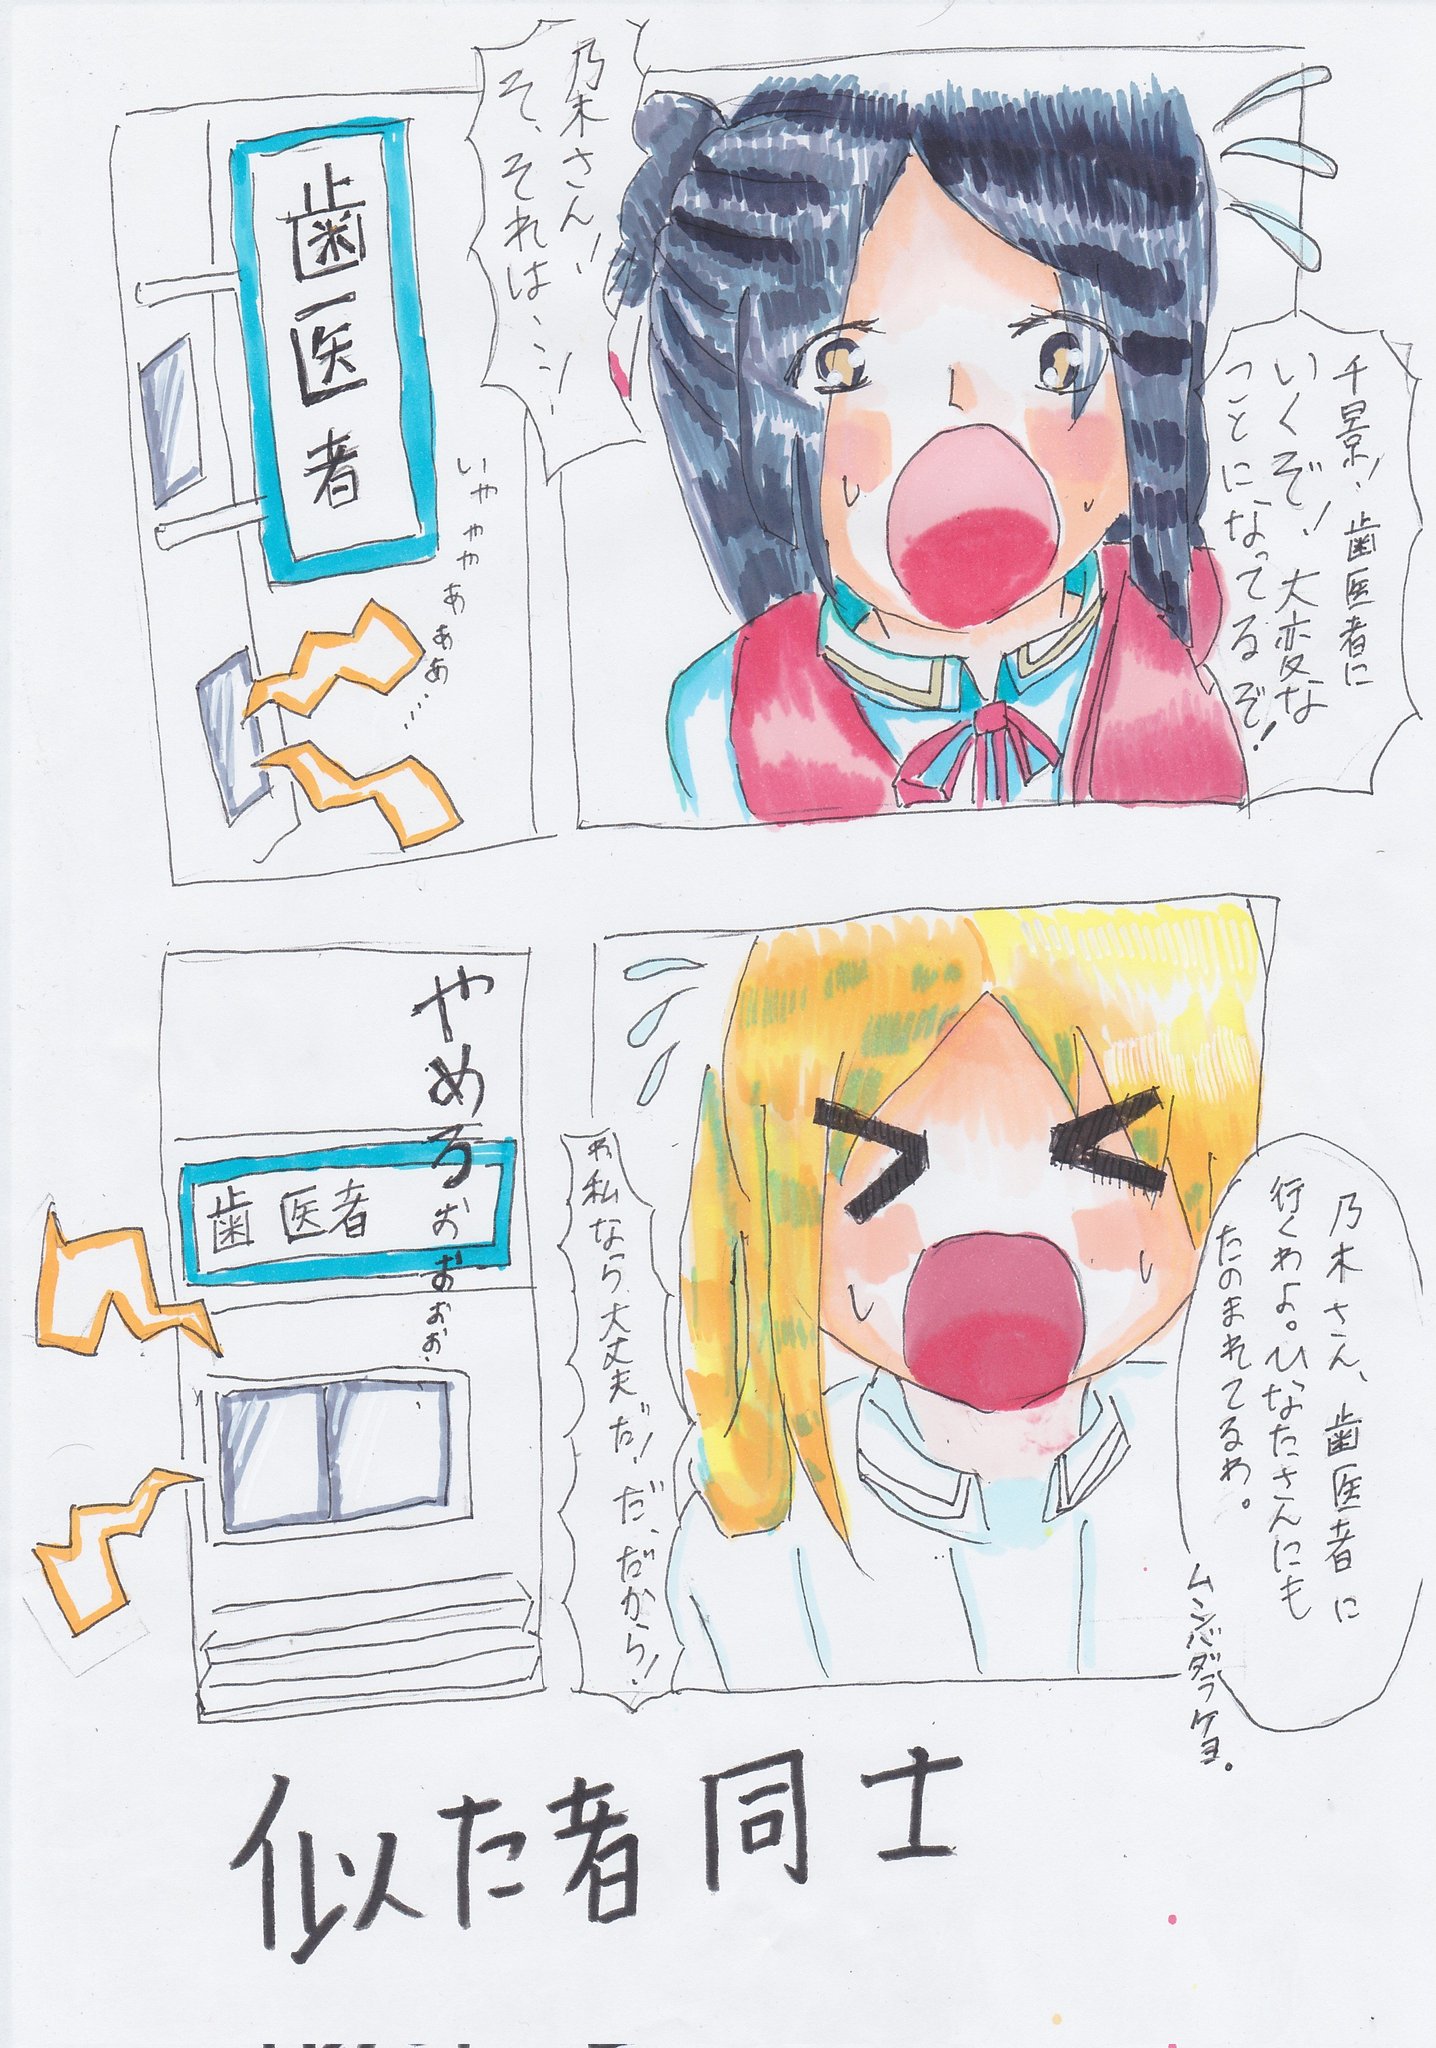 千景！歯医者に
いくぞ！大変な
ことになってるぞ！
乃木さん！
そ、それは、ッ！
歯医者
いややや
あぁぁ……
乃木さん、歯医者に
行くわよ。ひなたさんにも
たのまれてるわ。
ムシバダラケヨ。
わ私なら、大丈夫だ！だ、だから！
やめろぉぉぉぉ．
歯医者
似た者同士